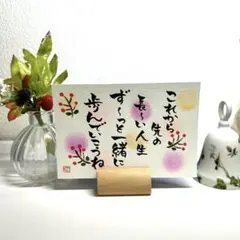 これから
先の
長〜い人生
ず〜っと一緒に
歩んでいこうね